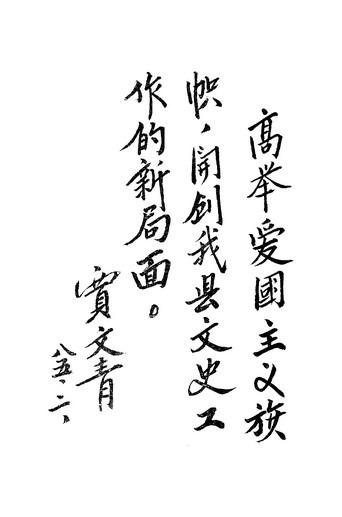 高举爱國主义旗
帜，開創我县文史工
作的新局面。
賈文青
八五．二．